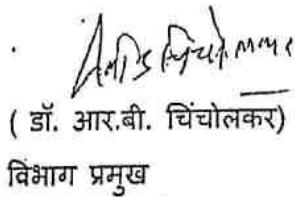 ( डॉ. आर.बी. चिंचोलकर)
विभाग प्रमुख